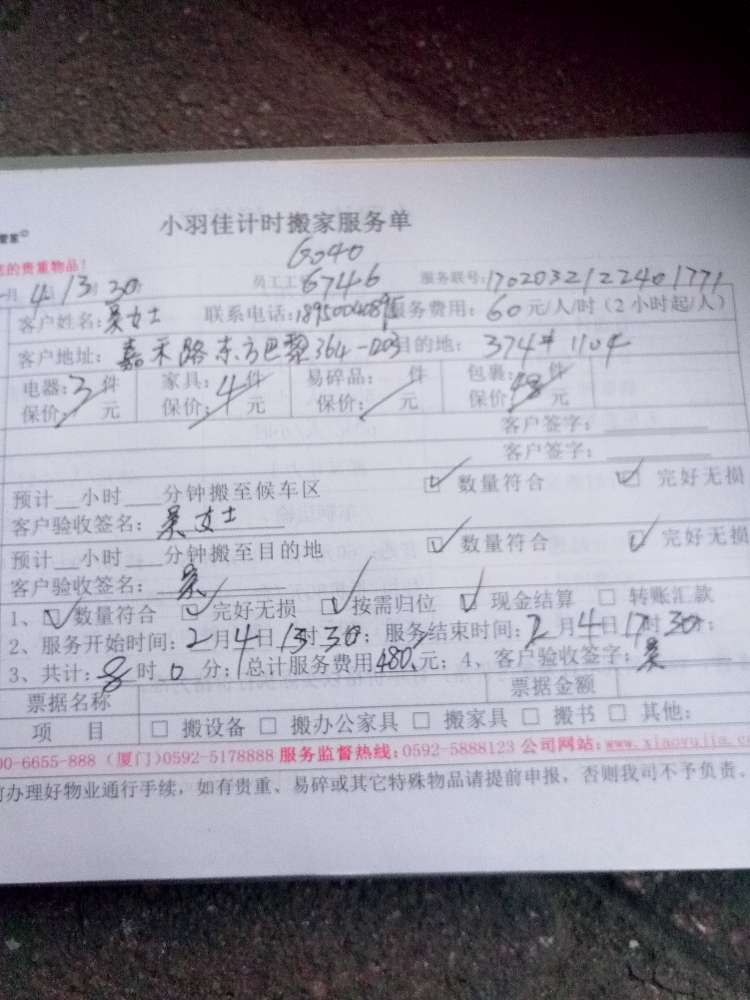 管家
小羽佳计时搬家服务单
您的贵重物品!
6040
月 4日13时30 员工工号 6746 服务联号:1702032122401771
客户姓名:吴女士 联系电话: 服务费用:60元/人/时(2小时起/人)
客户地址:嘉禾路东方巴黎364-1203 目的地:374# 1104
电器:3件 家具:4件 易碎品: 件 包裹:48件
保价: 元 保价: 元 保价: 元 保价: 元
客户签字:
客户签字:
预计__小时___分钟搬至候车区 ☑ 数量符合 ☑ 完好无损
客户验收签名:吴女士
预计__小时___分钟搬至目的地 ☑ 数量符合 ☑ 完好无损
客户验收签名:吴
1、☑数量符合 ☑完好无损 ☑按需归位 ☑现金结算 □ 转账汇款
2、服务开始时间:2月4日13时30分;服务结束时间:2月4日17时30分;
3、共计:8时0分;总计服务费用480元;4、客户验收签字:吴
票据名称 票据金额
项 目 □ 搬设备 □ 搬办公家具 □ 搬家具 □ 搬书 □ 其他:
00-6655-888 (厦门)0592-5178888 服务监督热线:0592-5888123 公司网站:www.xiaoyujia.co
前办理好物业通行手续,如有贵重、易碎或其它特殊物品请提前申报,否则我司不予负责。